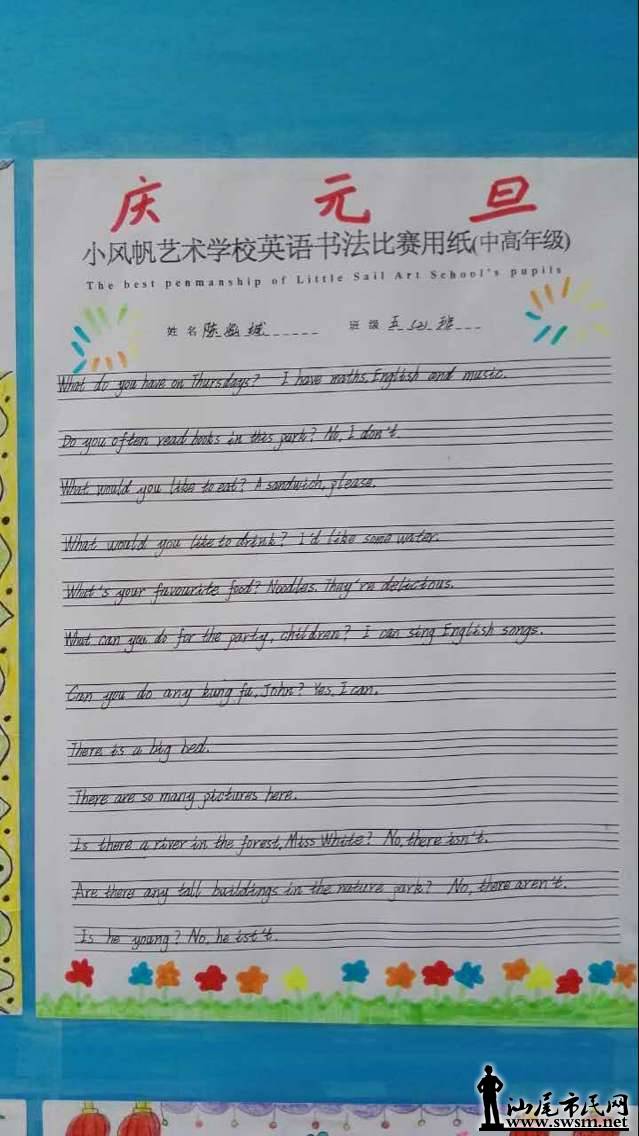 庆 元 旦
小风帆艺术学校英语书法比赛用纸(中高年级)
The best penmanship of Little Sail Art School's pupils
姓名 陈 班级 五(2)班
What do you have on Thursdays? I have maths, English and music.
Do you often read books in this park? No, I don't.
What would you like to eat? A sandwich, please.
What would you like to drink? I'd like some water.
What's your favourite food? Noodles. They're delicious.
What can you do for the party, children? I can sing English songs.
Can you do any kung fu, John? Yes, I can.
There is a big bed.
There are so many pictures here.
Is there a river in the forest, Miss White? No, there isn't.
Are there any tall buildings in the nature park? No, there aren't.
Is he young? No, he ist't.
汕尾市民网
www.swsm.net